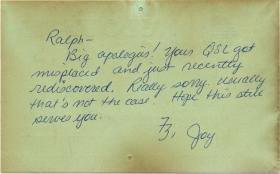 Ralph-
Big apologies! Your QSL got
misplaced and just recently
rediscovered. Really sorry. Usually
that's not the case. Hope this still
serves you.
73, Joy